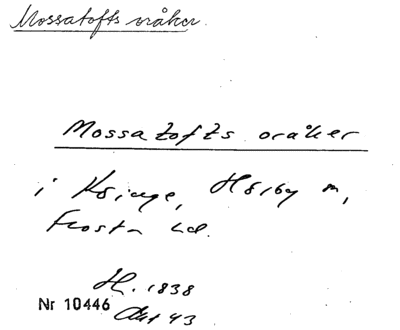 Mossatofts oråker
Mossatofts oråker
i Kringe, Hörby sn,
Frosta hd.
H. 1838
Nr 10446
Akt 43